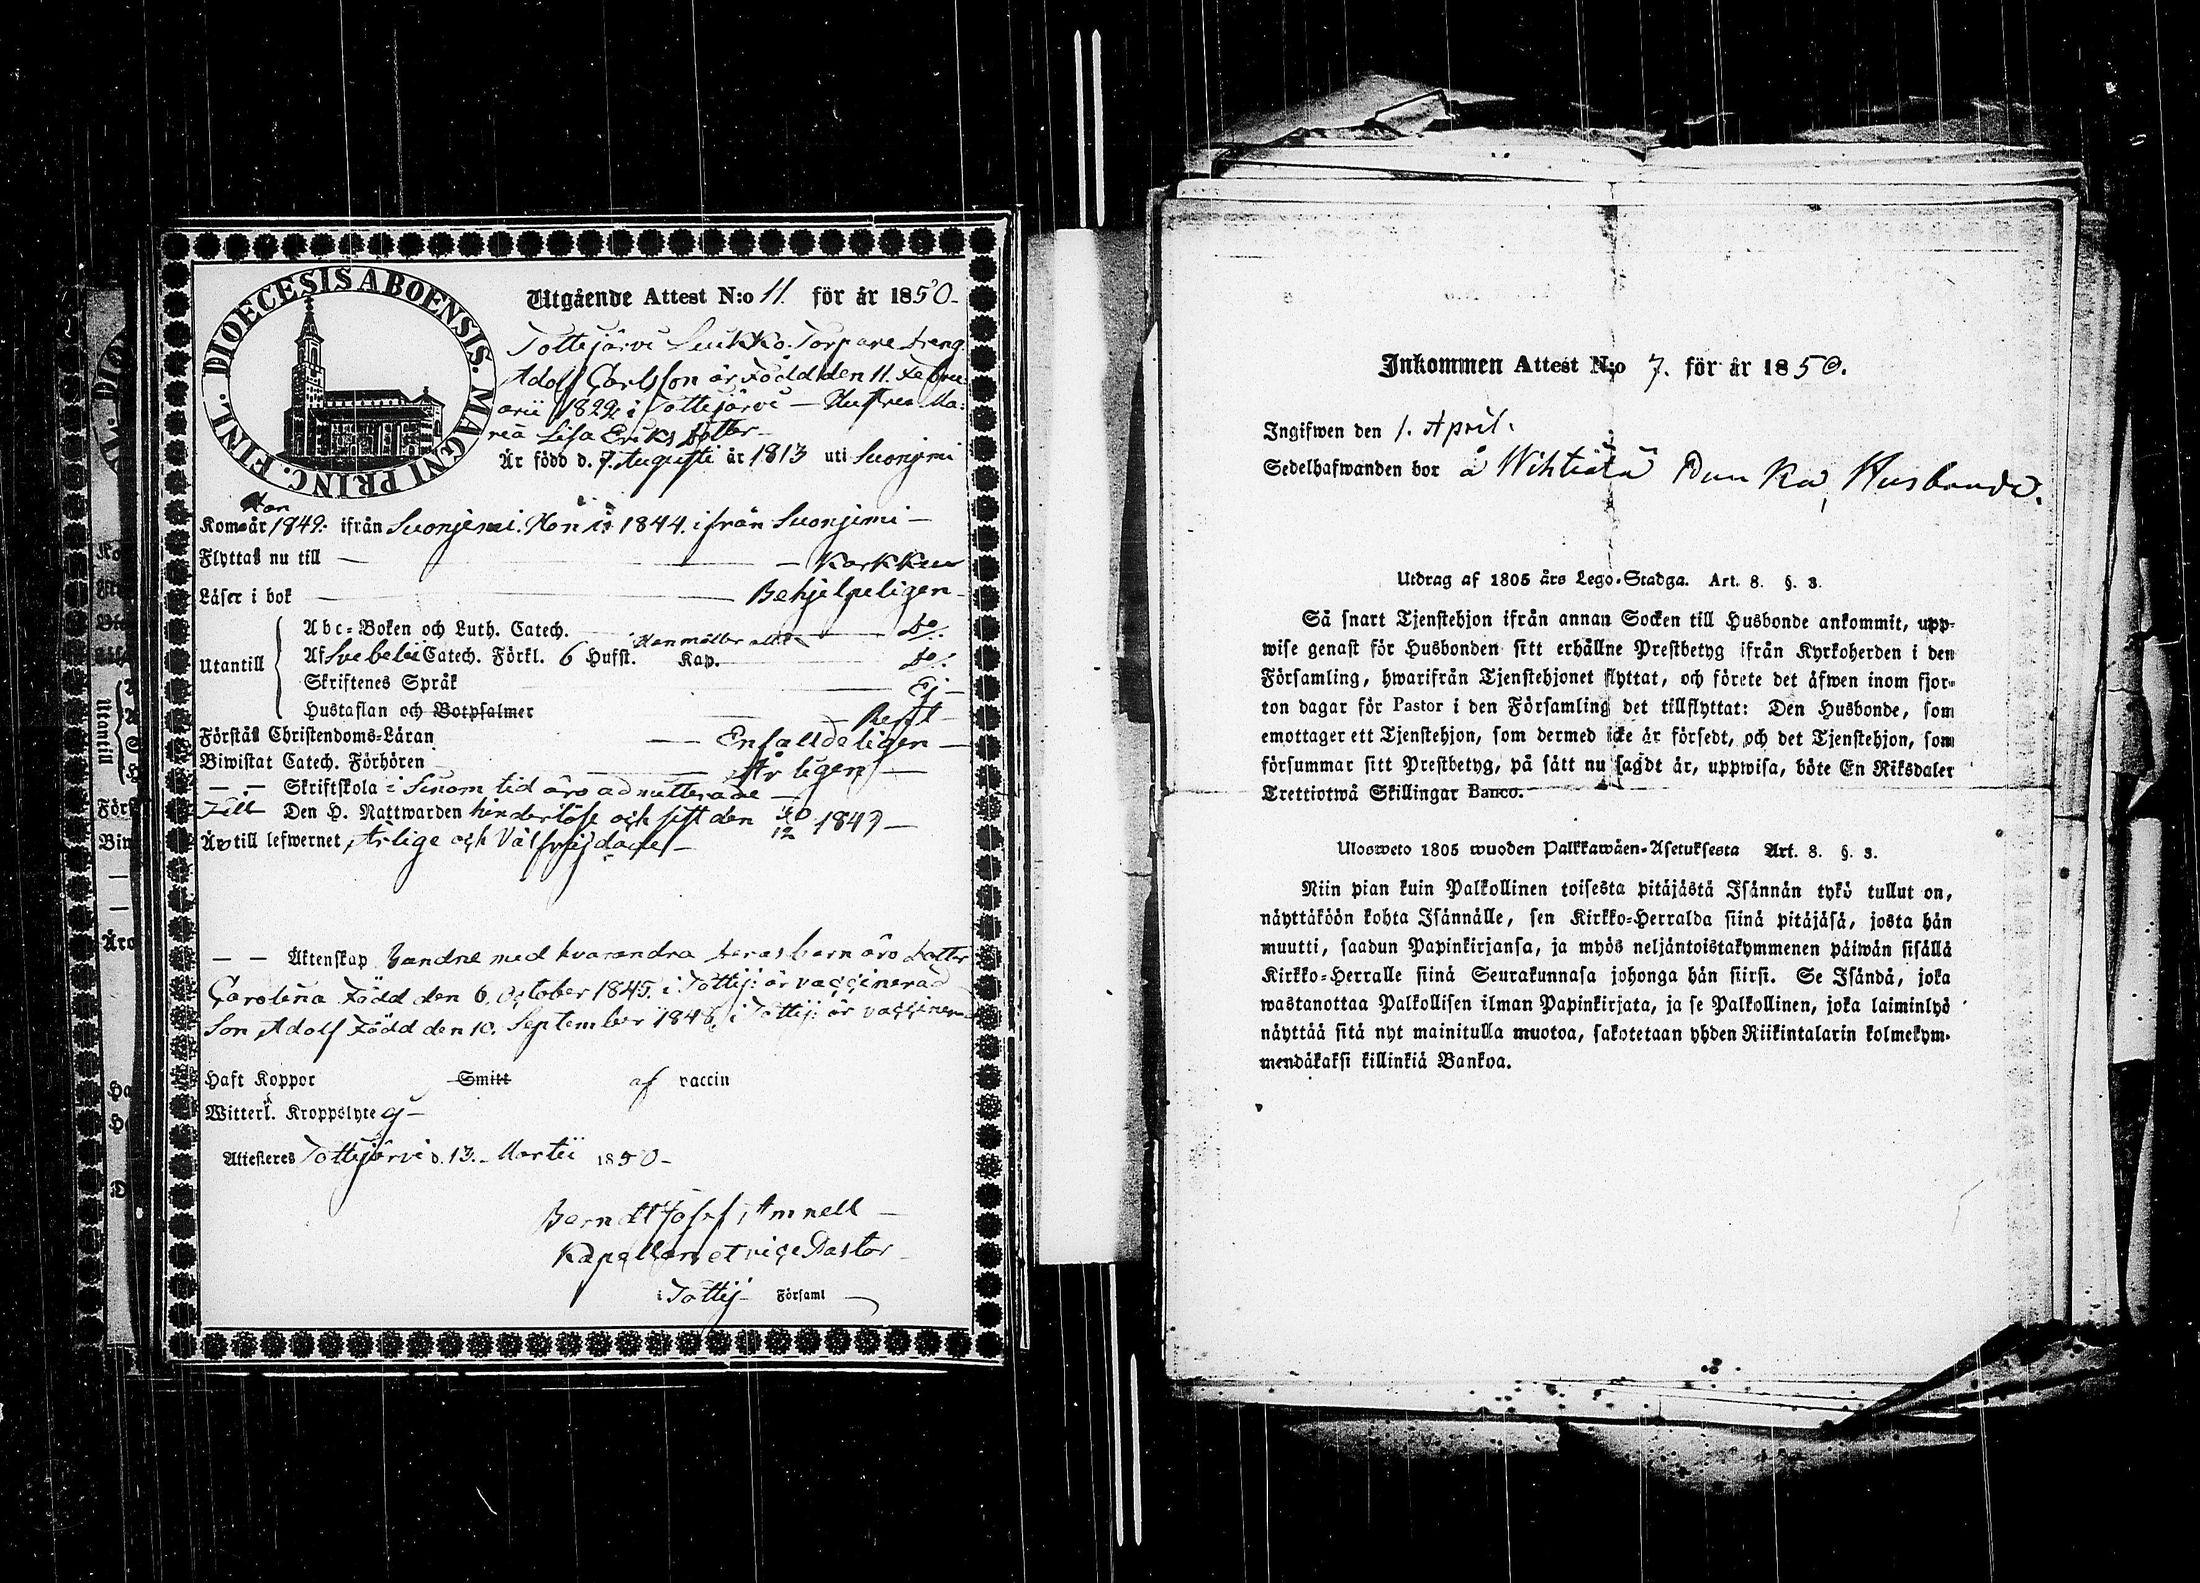 DIOECESIS ABOENSIS. MAGNI PRINC. FINL.
Utgående Attest N:o 11. för år 1850-
Tottijärvi Suikko Torpare dreng
Adolf Carlsson är Född den 11. Febru-
arii 1822 i Tottijärvi — Hustrun Ma-
ria Lisa Eriks dotter
Är född d. 7. Augusti år 1813 uti Suonjemi
Kom Han år 1842. ifrån Suonjemi. Hon 1844. ifrån Suonjemi —
Flyttaß nu till — — Karkku
Läser i bok — Behjelpeligen -
Utantill
Abc-Boken och Luth. Catech. — do.
Af Svebelii Catech. Förkl. 6 Hufst. Kap. — do.
Skriftenes Språk — Ej —
Hustaflan och Botpsalmer — Resst —
Förstås Christendoms-Läran — Enfalldeligen —
Biwistat Catech. Förhören — Årligen —
— - — Skriftskola i sinom tid äro admitterade —
Till Den H. Nattwarden hinderlöse och sist den 30/12 1849 —
Äro till lefwernet Ärlige och Välfrejdade —
— — Äktenskap bandne med hvarandra deras barn äro dotter
Carolina Född den 6. October 1845. i Tottij: är vaccinerad
Son Adolf Född den 10. September 1848. i Tottij: är vaccinerad
Haft Koppor Smitt af vaccin
Witterl. Kroppslyte Ej —
Attesteres Tottijärvi d. 13. Martii 1850 —
Berndt Josef Amnell —
Kapellan et vice Pastor
i Tottij- Församl
Inkommen Attest N:o 7. för år 1850.
Ingifwen den 1. April.
Sedelhafwanden bor å Wihtiälä Dunka, Husbonde.
Utdrag af 1805 års Lego-Stadga. Art. 8. §. 3.
Så snart Tjenstehjon ifrån annan Socken till Husbonde ankommit, upp-
wise genast för Husbonden sitt erhållne Prestbetyg ifrån Kyrkoherden i den
Församling, hwarifrån Tjenstehjonet flyttat, och förete det äfwen inom fjor-
ton dagar för Pastor i den Församling det tillflyttat: Den Husbonde, som
emottager ett Tjenstehjon, som dermed icke är försedt, och det Tjenstehjon, som
försummar sitt Prestbetyg, på sätt nu sagdt är, uppwisa, böte En Riksdaler
Trettiotwå Skillingar Banco.
Ulosweto 1805 wuoden Palkkawäen-Asetuksesta Art. 8. §. 3.
Niin pian kuin Palkollinen toisesta pitäjästä Isännän tykö tullut on,
näyttäköön kohta Isännälle, sen Kirkko-Herralda siinä pitäjäsä, josta hän
muutti, saadun Papinkirjansa, ja myös neljäntoistakymmenen päiwän sisällä
Kirkko-Herralle siinä Seurakunnasa johonga hän siirsi. Se Isändä, joka
wastanottaa Palkollisen ilman Papinkirjata, ja se Palkollinen, joka laiminlyö
näyttää sitä nyt mainitulla muotoa, sakotetaan yhden Riikintalarin kolmekym-
mendäkaksi killinkiä Bankoa.